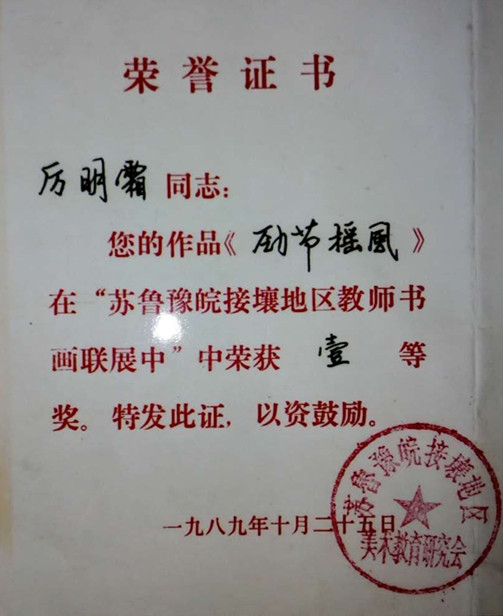 荣誉证书
厉明霜同志：
您的作品《劲节摇风》
在“苏鲁豫皖接壤地区教师书
画联展中”中荣获 壹 等
奖。特发此证，以资鼓励。
一九八九年十月二十五日
苏鲁豫皖接壤地区
美术教育研究会